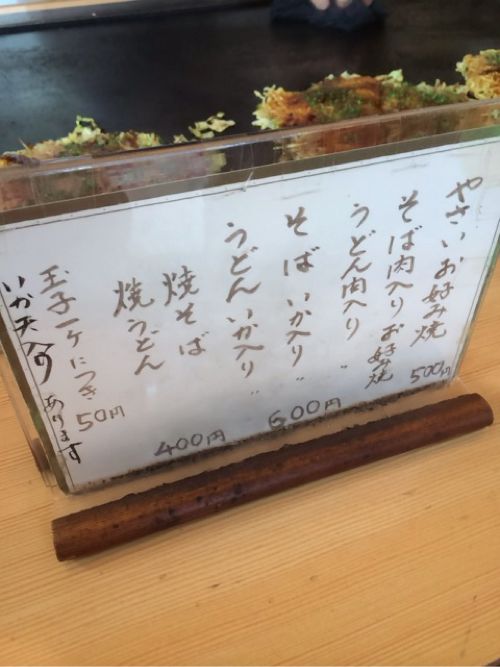 やさいお好み焼 500円
そば肉入りお好み焼
うどん肉入り 〃
そばいか入り 〃 600円
うどんいか入り 〃
焼そば 400円
焼うどん
玉子一ケにつき 50円
いか天入り あります